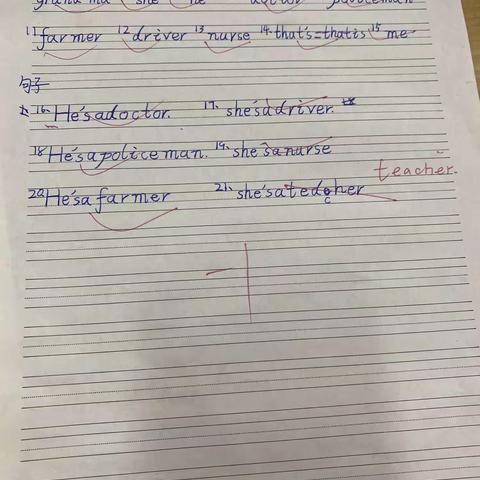 grandma she he doctor policeman
11 farmer 12 driver 13 nurse 14. that's=thatis 15 me
句子
16. He'sadoctor. 17. she'sadriver.
18 He'sapoliceman. 19. she'sanurse
teacher.
20 He'sa farmer 21. she'sa